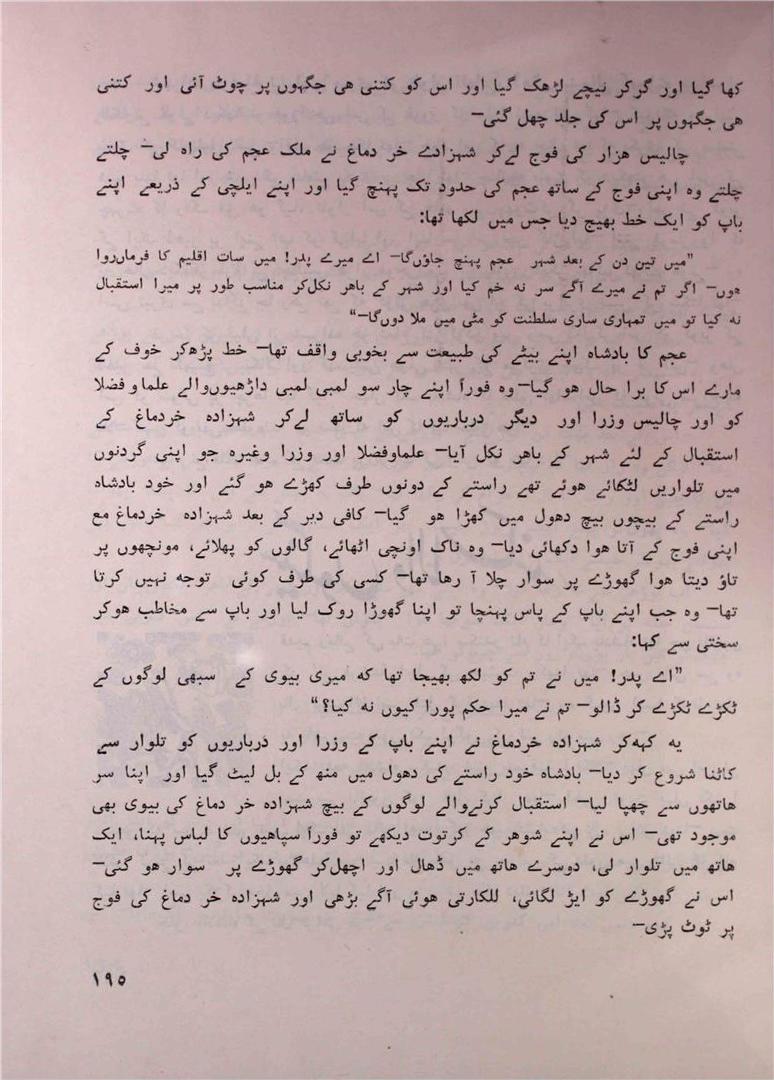 کھا گیا اور گرکر نیچے لڑھک گیا اور اس کو کتنی هی جگہوں پر چوٹ آئی اور کتنی
هی جگہوں پر اس کی جلد چھل گئی—
چالیس هزار کی فوج لےکر شہزادے خر دماغ نے ملک عجم کی راہ لی— چلتے
چلتے وہ اپنی فوج کے ساتھ عجم کی حدود تک پہنچ گیا اور اپنے ایلچی کے ذریعے اپنے
باپ کو ایک خط بھیج دیا جس میں لکھا تھا:
”میں تین دن کے بعد شہر عجم پہنچ جاؤںگا— اے میرے پدر! میں سات اقلیم کا فرماںروا
هوں— اگر تم نے میرے آگے سر نه خم کیا اور شہر کے باهر نکل‌کر مناسب طور پر میرا استقبال
نه کیا تو میں تمہاری ساری سلطنت کو مٹی میں ملا دوں‌گا—“
عجم کا بادشاہ اپنے بیٹے کی طبیعت سے بخوبی واقف تھا— خط پڑھ‌کر خوف کے
مارے اس کا برا حال هو گیا— وہ فوراً اپنے چار سو لمبی لمبی داڑھیوں‌والے علما و فضلا
کو اور چالیس وزرا اور دیگر درباریوں کو ساتھ لےکر شہزادہ خردماغ کے
استقبال کے لئے شہر کے باهر نکل آیا— علماوفضلا اور وزرا وغیرہ جو اپنی گردنوں
میں تلواریں لٹکائے هوئے تھے راستے کے دونوں طرف کھڑے هو گئے اور خود بادشاہ
راستے کے بیچوں بیچ دھول میں کھڑا هو گیا— کافی دیر کے بعد شہزادہ خردماغ مع
اپنی فوج کے آتا هوا دکھائی دیا— وہ ناک اونچی اٹھائے، گالوں کو پھلائے، مونچھوں پر
تاؤ دیتا هوا گھوڑے پر سوار چلا آ رها تھا— کسی کی طرف کوئی توجه نہیں کرتا
تھا— وہ جب اپنے باپ کے پاس پہنچا تو اپنا گھوڑا روک لیا اور باپ سے مخاطب هوکر
سختی سے کہا:
”اے پدر! میں نے تم کو لکھ بھیجا تھا که میری بیوی کے سبھی لوگوں کے
ٹکڑے ٹکڑے کر ڈالو— تم نے میرا حکم پورا کیوں نه کیا؟“
یه کہه‌کر شہزادہ خردماغ نے اپنے باپ کے وزرا اور درباریوں کو تلوار سے
کاٹنا شروع کر دیا— بادشاہ خود راستے کی دھول میں منھ کے بل لیٹ گیا اور اپنا سر
هاتھوں سے چھپا لیا— استقبال کرنےوالے لوگوں کے بیچ شہزادہ خر دماغ کی بیوی بھی
موجود تھی— اس نے اپنے شوهر کے کرتوت دیکھے تو فوراً سپاهیوں کا لباس پہنا، ایک
هاتھ میں تلوار لی، دوسرے هاتھ میں ڈھال اور اچھل‌کر گھوڑے پر سوار هو گئی—
اس نے گھوڑے کو ایڑ لگائی، للکارتی هوئی آگے بڑھی اور شہزادہ خر دماغ کی فوج
پر ٹوٹ پڑی—
۱۹۵